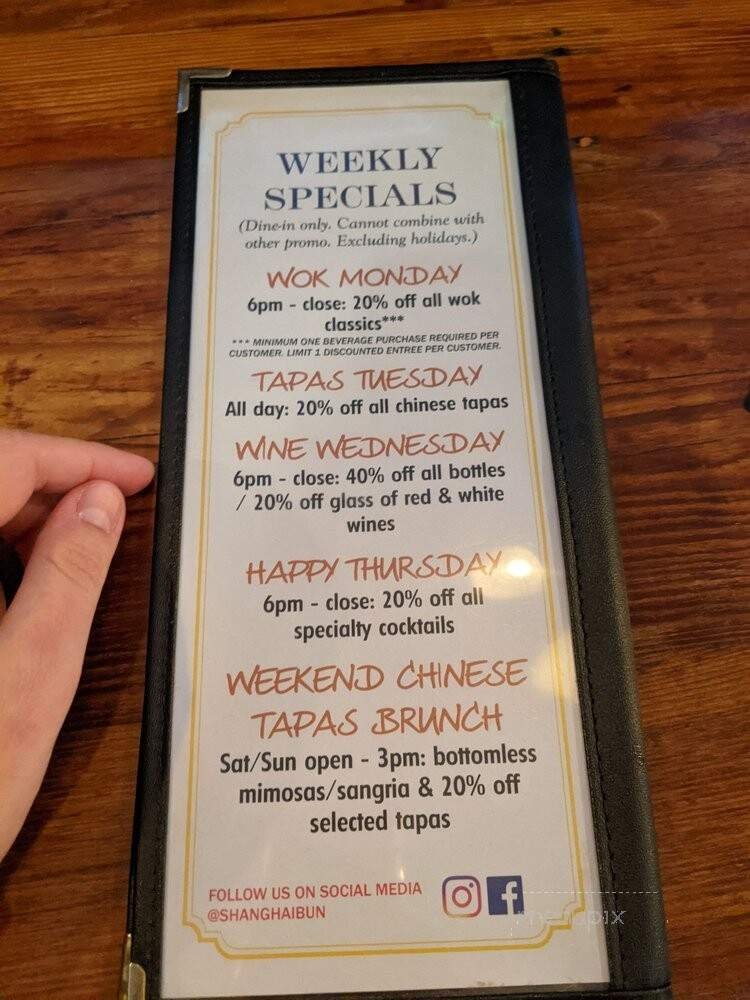 WEEKLY
SPECIALS
(Dine-in only. Cannot combine with
other promo. Excluding holidays.)
WOK MONDAY
6pm - close: 20% off all wok
classics***
*** MINIMUM ONE BEVERAGE PURCHASE REQUIRED PER
CUSTOMER. LIMIT 1 DISCOUNTED ENTREE PER CUSTOMER.
TAPAS TUESDAY
All day: 20% off all chinese tapas
WINE WEDNESDAY
6pm - close: 40% off all bottles
/ 20% off glass of red & white
wines
HAPPY THURSDAY
6pm - close: 20% off all
specialty cocktails
WEEKEND CHINESE
TAPAS BRUNCH
Sat/Sun open - 3pm: bottomless
mimosas/sangria & 20% off
selected tapas
FOLLOW US ON SOCIAL MEDIA
@SHANGHAIBUN